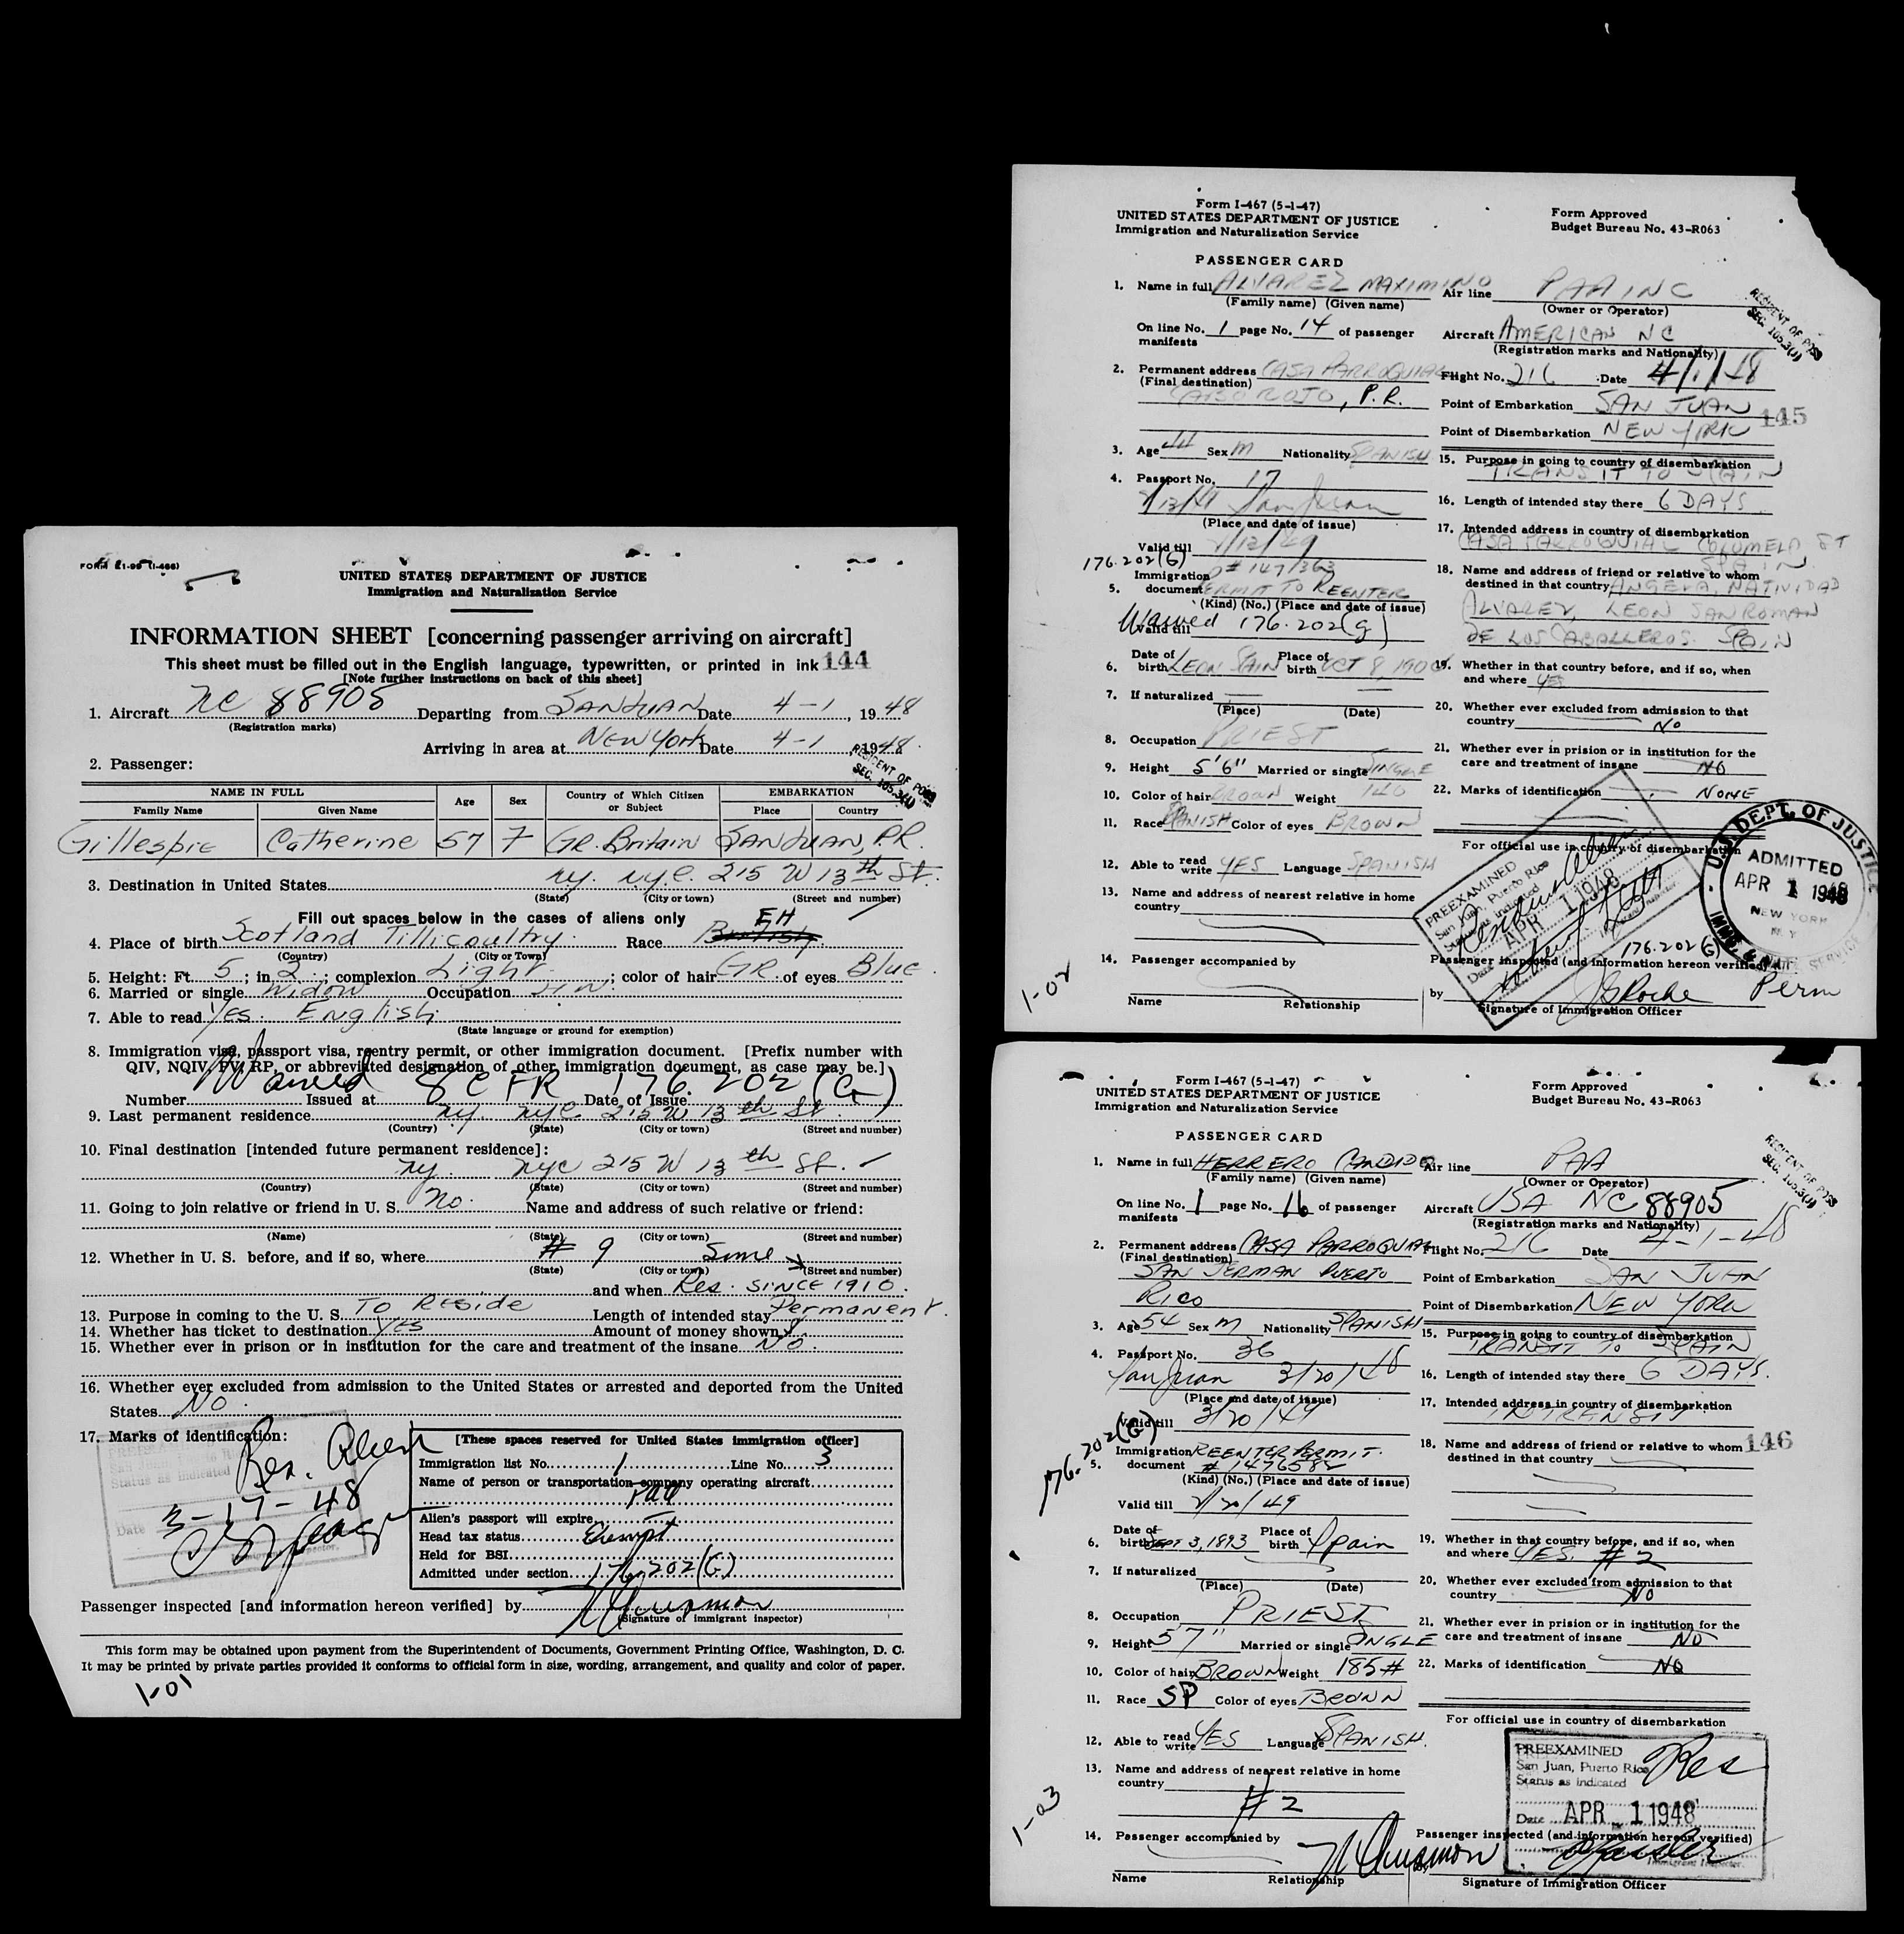 FORM I-466)
UNITED STATES DEPARTMENT OF JUSTICE
Immigration and Naturalization Service
INFORMATION SHEET [concerning passenger arriving on aircraft]
This sheet must be filled out in the English language, typewritten, or printed in ink 144
[Note further instructions on back of this sheet]
1. Aircraft NC 88905 Departing from SAN JUAN Date 4-1, 1948
(Registration marks)
Arriving in area at NEW YORK Date 4-1 1948
RESIDENT OF POSS
SEC. 105.3(J)
2. Passenger:
NAME IN FULL Age Sex Country of Which Citizen or Subject EMBARKATION
Family Name Given Name Place Country
Gillespie Catherine 57 F GR. Britain SAN JUAN, P.R.
3. Destination in United States ny. nyc. 215 W 13th St.
(State) (City or town) (Street and number)
Fill out spaces below in the cases of aliens only
4. Place of birth Scotland Tillicoultry Race British EH
(Country) (City or Town)
5. Height: Ft. 5; in 2; complexion Light; color of hair GR. of eyes Blue.
6. Married or single Widow Occupation
7. Able to read Yes. English
(State language or ground for exemption)
8. Immigration visa, passport visa, reentry permit, or other immigration document. [Prefix number with
QIV, NQIV, PV, RP, or abbreviated designation of other immigration document, as case may be.]
Waived 8 CFR 176.202(G)
Number Issued at Date of Issue
9. Last permanent residence ny. nyc 215 W 13th St.
(Country) (State) (City or town) (Street and number)
10. Final destination [intended future permanent residence]:
ny. nyc 215 W 13th St.
(Country) (State) (City or town) (Street and number)
11. Going to join relative or friend in U. S. No. Name and address of such relative or friend:
(Name) (State) (City or town) (Street and number)
12. Whether in U. S. before, and if so, where # 9 Same
(State) (City or town) (Street and number)
and when Res. SINCE 1910.
13. Purpose in coming to the U. S. To Reside Length of intended stay Permanent.
14. Whether has ticket to destination YES Amount of money shown
15. Whether ever in prison or in institution for the care and treatment of the insane No.
16. Whether ever excluded from admission to the United States or arrested and deported from the United
States No.
17. Marks of identification:
Res. Alien
3-17-48
Status as indicated
Date
[These spaces reserved for United States immigration officer]
Immigration list No. 1 Line No. 3
Name of person or transportation company operating aircraft
PAA
Alien's passport will expire
Head tax status Exempt
Held for BSI
Admitted under section 176.202(G)
Passenger inspected [and information hereon verified] by
(Signature of immigrant inspector)
This form may be obtained upon payment from the Superintendent of Documents, Government Printing Office, Washington, D. C.
It may be printed by private parties provided it conforms to official form in size, wording, arrangement, and quality and color of paper.
1-01
Form I-467 (5-1-47)
UNITED STATES DEPARTMENT OF JUSTICE
Immigration and Naturalization Service
Form Approved
Budget Bureau No. 43-R063
PASSENGER CARD
1. Name in full ALVAREZ MAXIMINO
(Family name) (Given name)
On line No. 1 page No. 14 of passenger
manifests
2. Permanent address CASA PARROQUIAL
(Final destination) CABO ROJO, P.R.
3. Age 44 Sex M Nationality SPANISH
4. Passport No. 17
San Juan
(Place and date of issue)
Valid till
176.202(G)
Immigration # 147/363
5. document PERMIT TO REENTER
(Kind) (No.) (Place and date of issue)
Valid till Waived 176.202(g)
6. Date of birth LEON SPAIN Place of birth OCT 8, 190
7. If naturalized
(Place) (Date)
8. Occupation PRIEST
9. Height 5'6" Married or single SINGLE
10. Color of hair BROWN Weight 140
11. Race SPANISH Color of eyes BROWN
12. Able to read write YES Language SPANISH
13. Name and address of nearest relative in home
country
14. Passenger accompanied by
Name Relationship
1-02
Air line PAA INC
(Owner or Operator)
RESIDENT OF POSS
SEC. 105.3(J)
Aircraft AMERICAN NC
(Registration marks and Nationality)
Flight No. 216 Date 4/1/48
Point of Embarkation SAN JUAN
145
Point of Disembarkation NEW YORK
15. Purpose in going to country of disembarkation
TRANSIT TO SPAIN
16. Length of intended stay there 6 DAYS
17. Intended address in country of disembarkation
CASA PARROQUIAL COLUMELA ST
SPAIN
18. Name and address of friend or relative to whom
destined in that country ANGELA, NATIVIDAD
ALVAREZ, LEON SAN ROMAN
DE LOS CABALLEROS. SPAIN
19. Whether in that country before, and if so, when
and where YES
20. Whether ever excluded from admission to that
country NO
21. Whether ever in prision or in institution for the
care and treatment of insane NO
22. Marks of identification NONE
For official use in country of disembarkation
PREEXAMINED
San Juan, Puerto Rico
Status as indicated
Date APR 1 1948
U.S. DEPT. OF JUSTICE
ADMITTED
APR 1 1948
NEW YORK
N.Y.
IMMG. & NAT. SERVICE
176.202(G)
Passenger inspected (and information hereon verified)
by JG Roche Perm
Signature of Immigration Officer
Form I-467 (5-1-47)
UNITED STATES DEPARTMENT OF JUSTICE
Immigration and Naturalization Service
Form Approved
Budget Bureau No. 43-R063
PASSENGER CARD
1. Name in full HERRERO CANDIDO
(Family name) (Given name)
On line No. 1 page No. 16 of passenger
manifests
2. Permanent address CASA PARROQUIAL
(Final destination)
SAN JERMAN PUERTO
RICO
3. Age 54 Sex M Nationality SPANISH
4. Passport No. 36
San Juan 3/20/48
(Place and date of issue)
Valid till 3/20/49
176.202(G)
Immigration REENTER PERMIT.
5. document # 147658
(Kind) (No.) (Place and date of issue)
Valid till
6. Date of birth SEPT 3, 1893 Place of birth Spain
7. If naturalized
(Place) (Date)
8. Occupation PRIEST
9. Height 5'7" Married or single SINGLE
10. Color of hair BROWN Weight 185#
11. Race SP Color of eyes BROWN
12. Able to read write YES Language SPANISH.
13. Name and address of nearest relative in home
country
# 2
14. Passenger accompanied by
Name Relationship
1-03
Air line PAA
(Owner or Operator)
RESIDENT OF POSS
SEC. 105.3(J)
Aircraft USA NC 88905
(Registration marks and Nationality)
Flight No. 216 Date 4-1-48
Point of Embarkation SAN JUAN
Point of Disembarkation NEW YORK
15. Purpose in going to country of disembarkation
TRANSIT TO SPAIN
16. Length of intended stay there 6 DAYS.
17. Intended address in country of disembarkation
IN TRANSIT
18. Name and address of friend or relative to whom 146
destined in that country
19. Whether in that country before, and if so, when
and where YES. #2
20. Whether ever excluded from admission to that
country NO
21. Whether ever in prision or in institution for the
care and treatment of insane NO
22. Marks of identification NO
For official use in country of disembarkation
PREEXAMINED
San Juan, Puerto Rico Res
Status as indicated
Date APR 1 1948
Immigrant Inspector.
Passenger inspected (and information hereon verified)
Signature of Immigration Officer